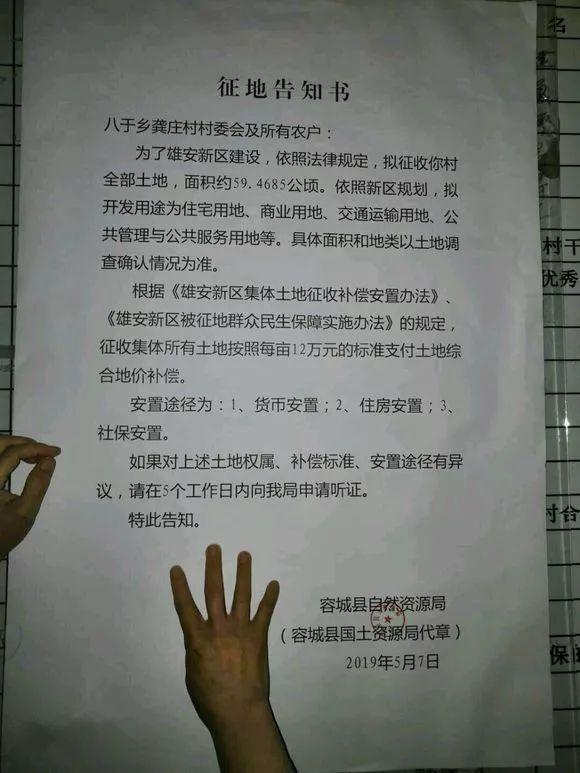 征地告知书
八于乡龚庄村村委会及所有农户：
为了雄安新区建设，依照法律规定，拟征收你村
全部土地，面积约59.4685公顷。依照新区规划，拟
开发用途为住宅用地、商业用地、交通运输用地、公
共管理与公共服务用地等。具体面积和地类以土地调
查确认情况为准。
根据《雄安新区集体土地征收补偿安置办法》、
《雄安新区被征地群众民生保障实施办法》的规定，
征收集体所有土地按照每亩12万元的标准支付土地综
合地价补偿。
安置途径为：1、货币安置；2、住房安置；3、
社保安置。
如果对上述土地权属、补偿标准、安置途径有异
议，请在5个工作日内向我局申请听证。
特此告知。
容城县自然资源局
（容城县国土资源局代章）
2019年5月7日
名
村干
优秀
村台
保